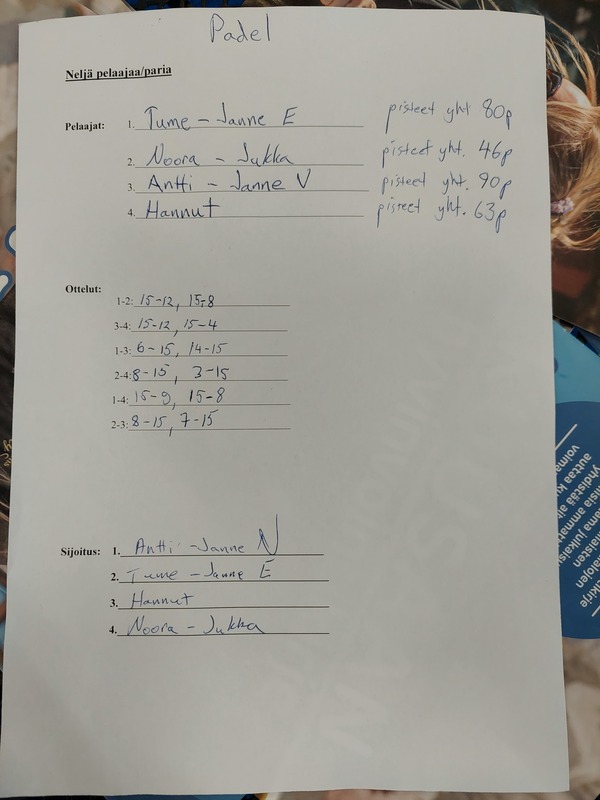 Padel
Neljä pelaajaa/paria
Pelaajat: 1. Tume - Janne E pisteet yht 80p
2. Noora - Jukka pisteet yht. 46p
3. Antti - Janne V pisteet yht. 90p
4. Hannut pisteet yht. 63p
Ottelut:
1-2: 15-12, 15-8
3-4: 15-12, 15-4
1-3: 6-15, 14-15
2-4: 8-15, 3-15
1-4: 15-9, 15-8
2-3: 8-15, 7-15
Sijoitus: 1. Antti - Janne V
2. Tume - Janne E
3. Hannut
4. Noora - Jukka